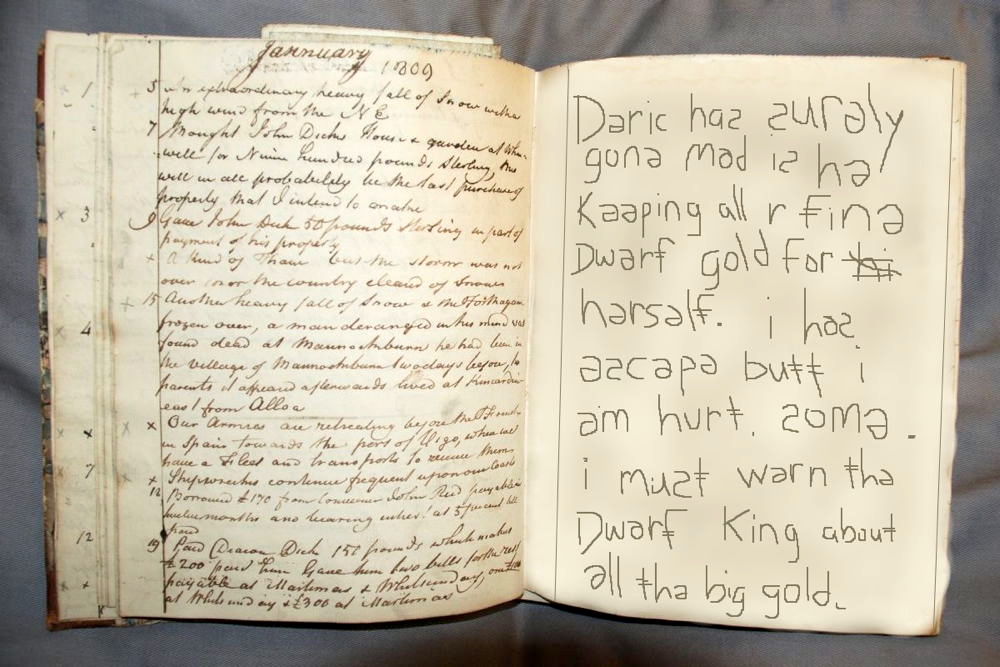 Jannuary 1809
1 5 un extraordinary heavy fall of Snow with a
high wind from the NE
7 Bought John Dicks House & garden at
well for Nine hundred pounds Sterling, this
will in all probability be the last purchase of
property that I intend to make
x 3 9 Gave John Dick 50 pounds Sterling in part of
payment of his property
x A kind of Thaw but the storm was not
over nor the country cleared of Snow
x 15 Another heavy fall of Snow & the Forth again
4 frozen over, a man deranged in his mind was
found dead at Mannochburn he had been in
the village of Mannochburn two days before, his
parents it appeard afterwards lived at Kincardin
east from Alloa
x x x Our Armies are retreating before the French
in Spain towards the port of Vigo, where we
have a Fleet and transports to receive them
7 x Shipwrecks continue frequent upon our Coasts
12 Borrowed £170 from John Reid payable in
twelve months and bearing at 5 per cent
paid
12 19 Paid Deacon Dick 150 pounds which makes
£200 paid him Gave him two bills for the rest
x payable at Martinmas & Whitsunday, one
at Whitsunday & £300 at Martinmas
Daric has surely
gone mad is he
Keeping all r fine
Dwarf gold for his
herself. i has
escape butt i
am hurt. some.
i must warn the
Dwarf King about
all the big gold.